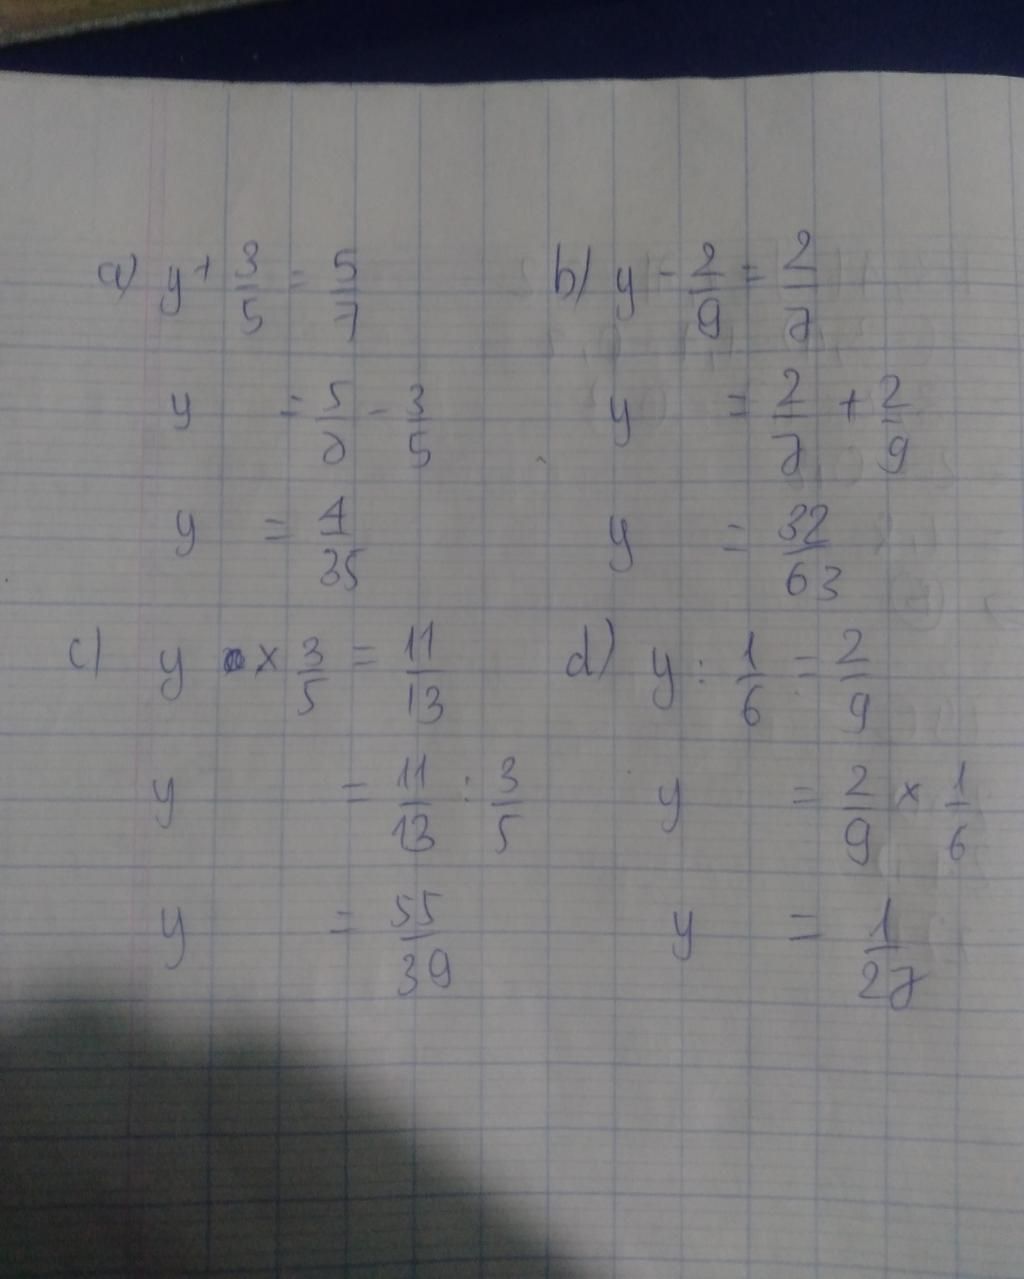 a) y + 3/5 = 5/7
y = 5/7 - 3/5
y = 4/35
b) y - 2/9 = 2/7
y = 2/7 + 2/9
y = 32/63
c) y × 3/5 = 11/13
y = 11/13 : 3/5
y = 55/39
d) y : 1/6 = 2/9
y = 2/9 × 1/6
y = 1/27